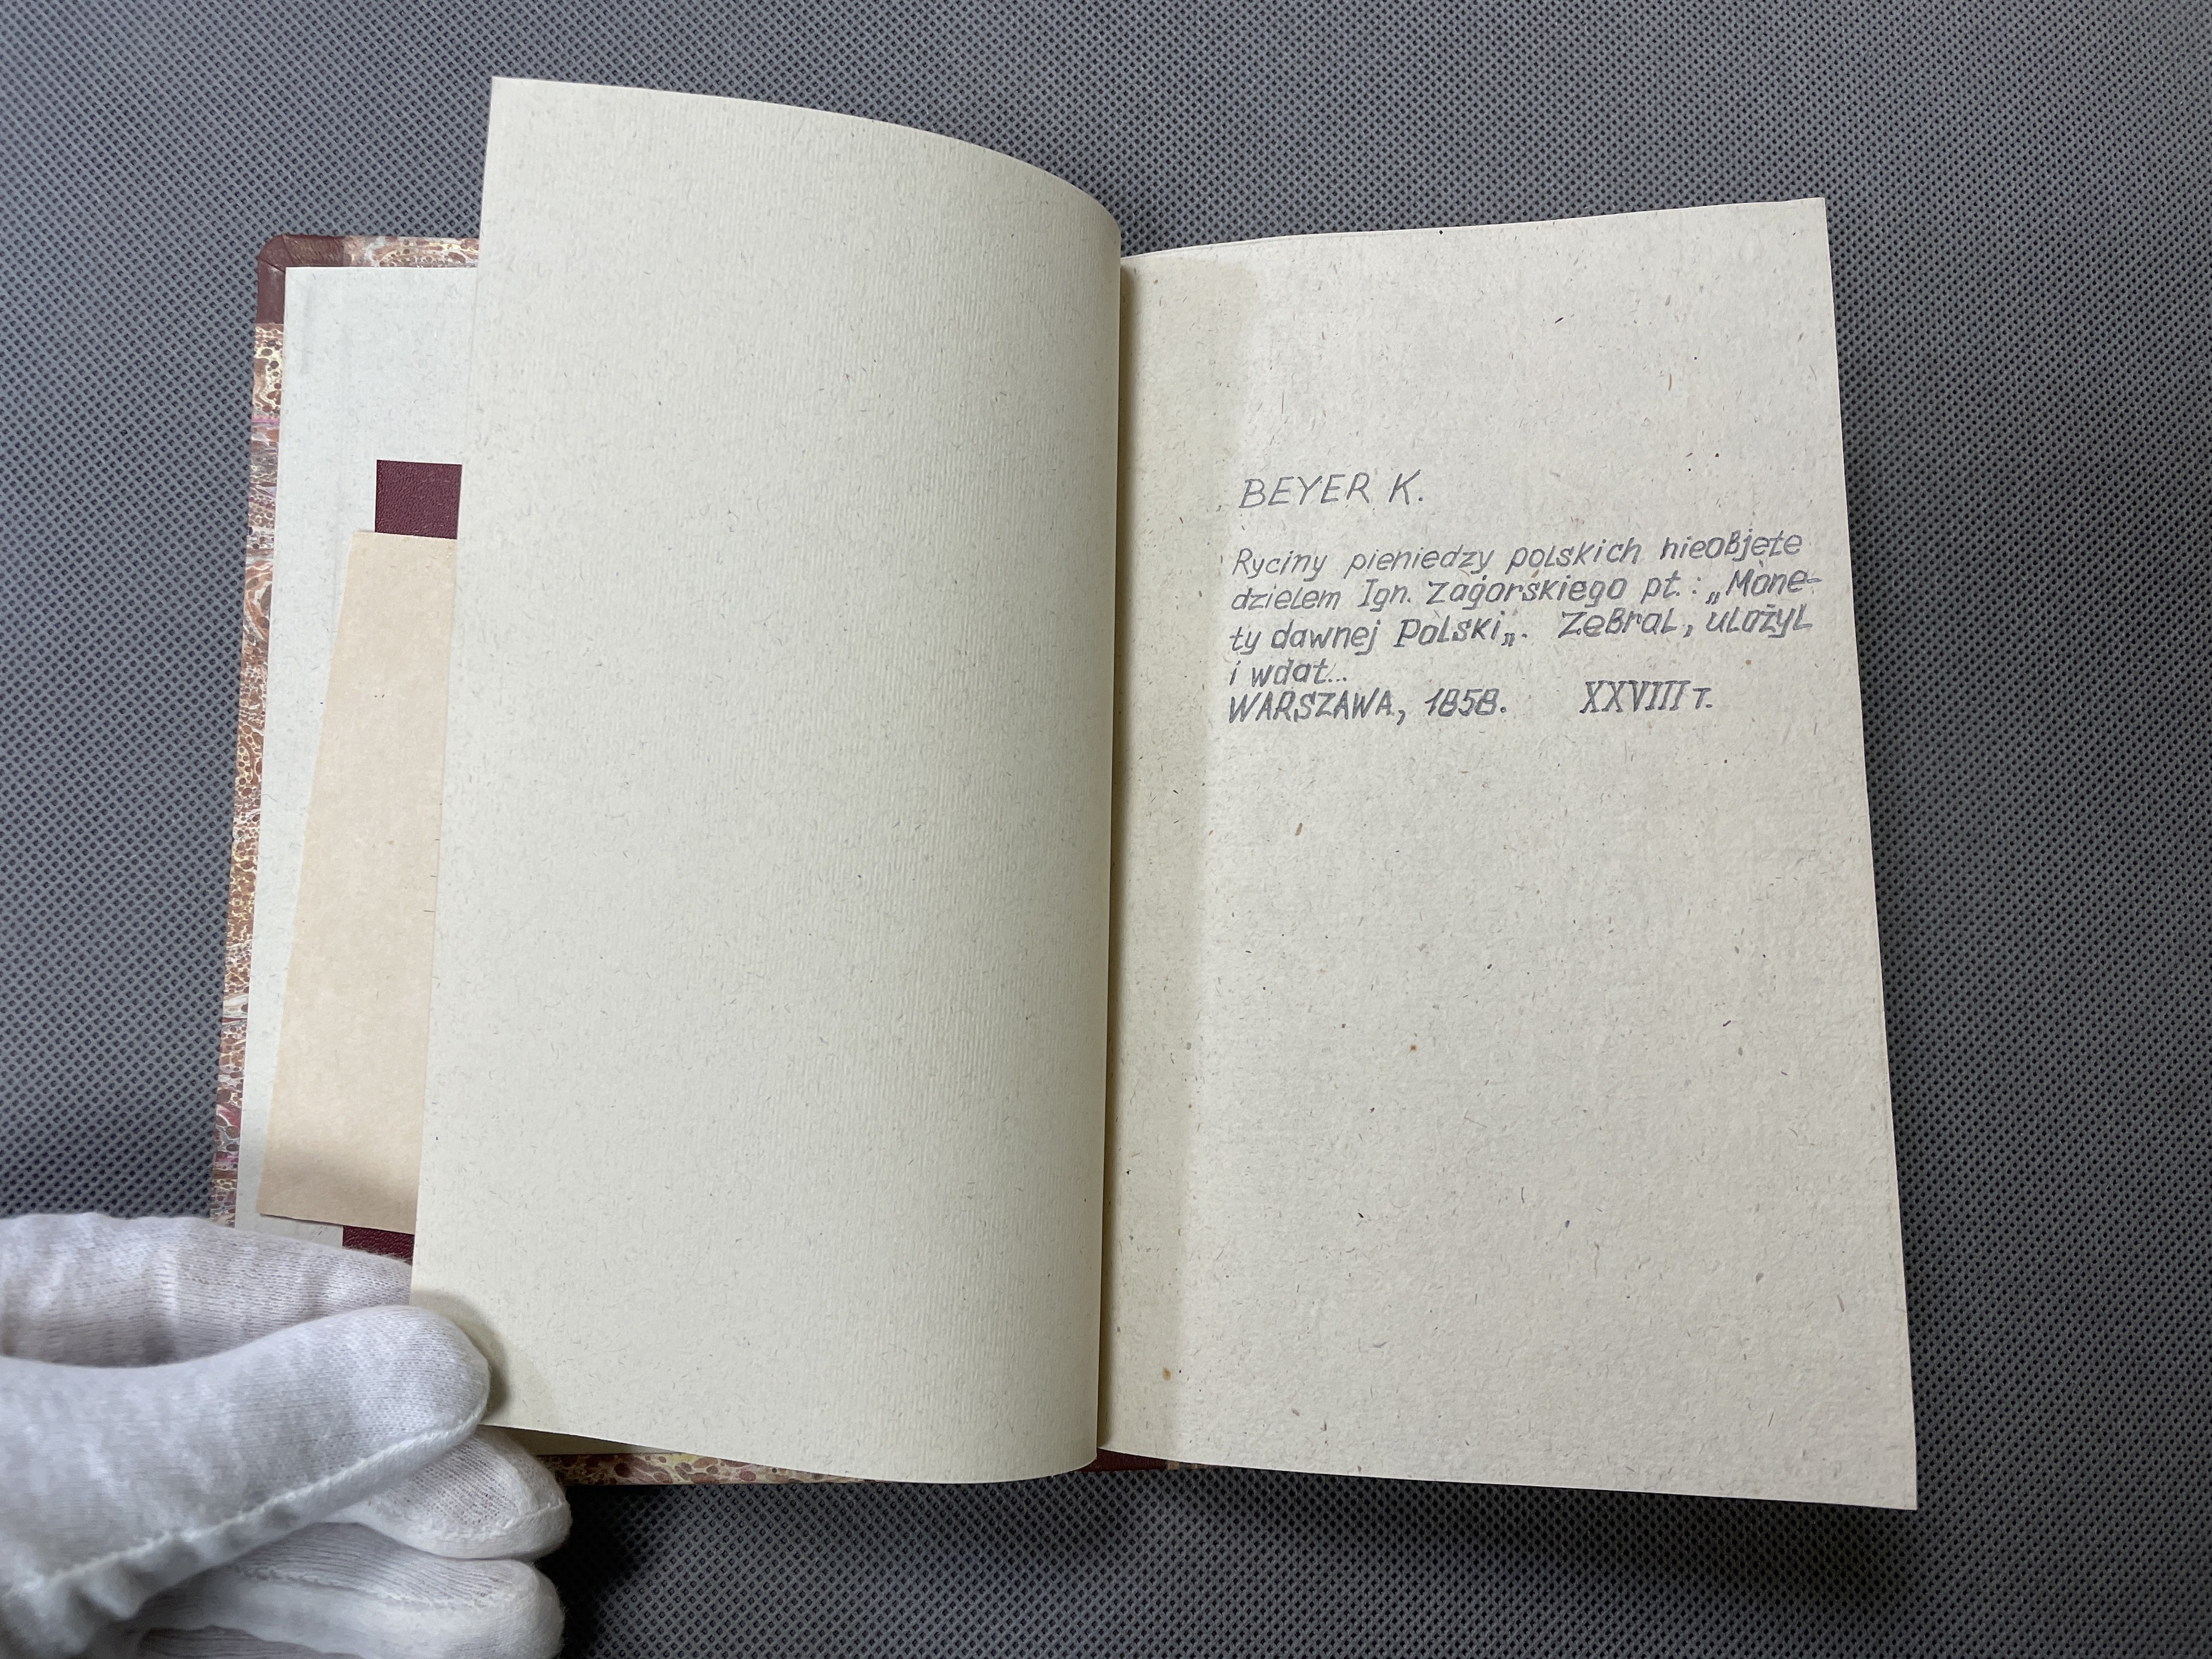 BEYER K.
Ryciny pieniedzy polskich nieobjęte
dzielem Ign. Zagórskiego pt.: „Mone-
ty dawnej Polski„. Zebral, ulożyl
i wdat...
WARSZAWA, 1858. XXVIII T.